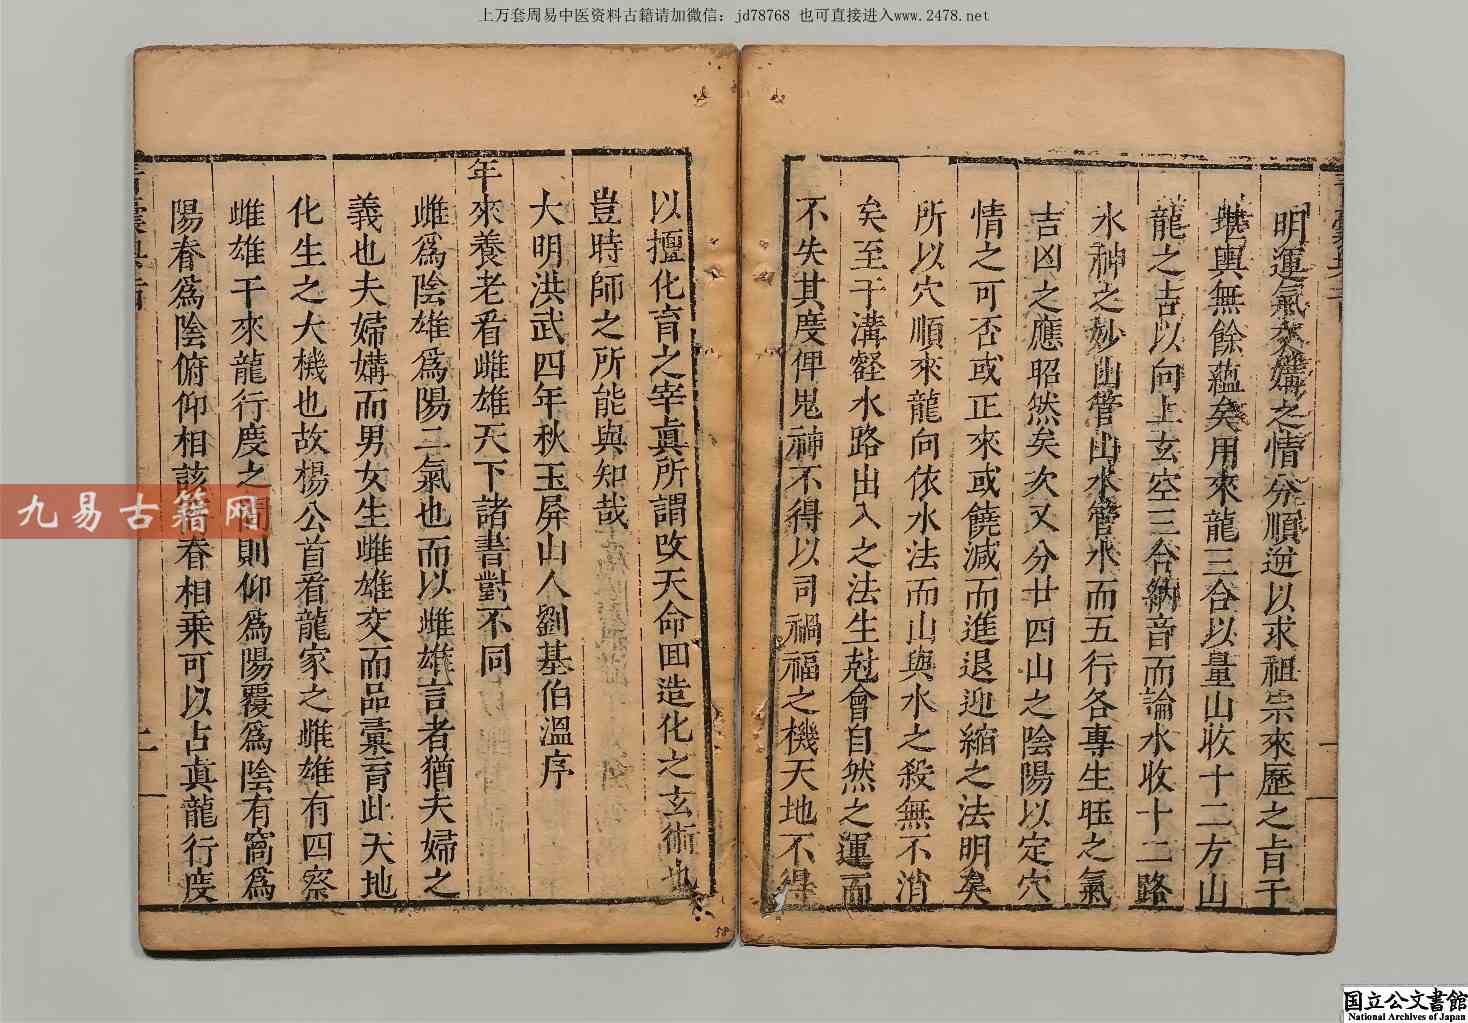 上万套周易中医资料古籍请加微信：jd78768 也可直接进入www.2478.net
明運氣交媾之情分順逆以求祖宗來歷之㫖于
堪輿無餘蘊矣用來龍三合以量山收十二方山
龍之吉以向上玄空三合納音而論水收十二路
水神之妙山管山水管水而五行各專生旺之氣
吉凶之應昭然矣次又分廿四山之陰陽以定穴
情之可否或正來或饒減而進退迎縮之法明矣
所以穴順來龍向依水法而山與水之殺無不消
矣至于溝壑水路出入之法生尅會自然之運而
不失其度俾鬼神不得以司禍福之機天地不得
以擅化育之宰眞所謂改天命囬造化之玄術也
豈時師之所能與知哉
大明洪武四年秋玉屏山人劉基伯溫序
年來養老看雌雄天下諸書對不同
雌爲陰雄爲陽二氣也而以雌雄言者猶夫婦之
義也夫婦媾而男女生雌雄交而品彙育此天地
化生之大機也故楊公首看龍家之雌雄有四察
雌雄干來龍行度之間則仰爲陽覆爲陰有窩爲
陽春爲陰俯仰相該春相乘可以占眞龍行度
九易古籍网
58
国立公文書館
National Archives of Japan